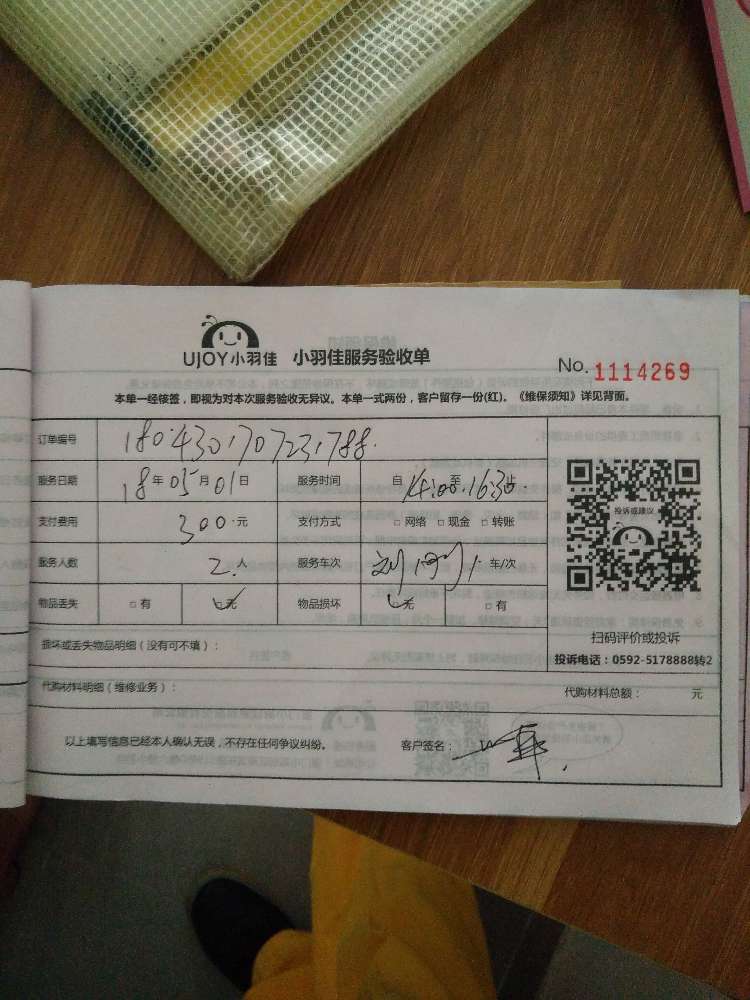 UJOY小羽佳 小羽佳服务验收单
No. 1114269
本单一经核签，即视为对本次服务验收无异议。本单一式两份，客户留存一份(红)。《维保须知》详见背面。
订单编号 180430170723788
服务日期 18年05月01日 服务时间 自14:00至16:30止
支付费用 300元 支付方式 □网络 □现金 □转账
服务人数 2人 服务车次 刘 车/次
物品丢失 □有 □无 物品损坏 □无 □有
投诉或建议
扫码评价或投诉
投诉电话：0592-5178888转2
损坏或丢失物品明细（没有可不填）：
代购材料明细（维修业务）： 代购材料总额： 元
以上填写信息已经本人确认无误，不存在任何争议纠纷。 客户签名：